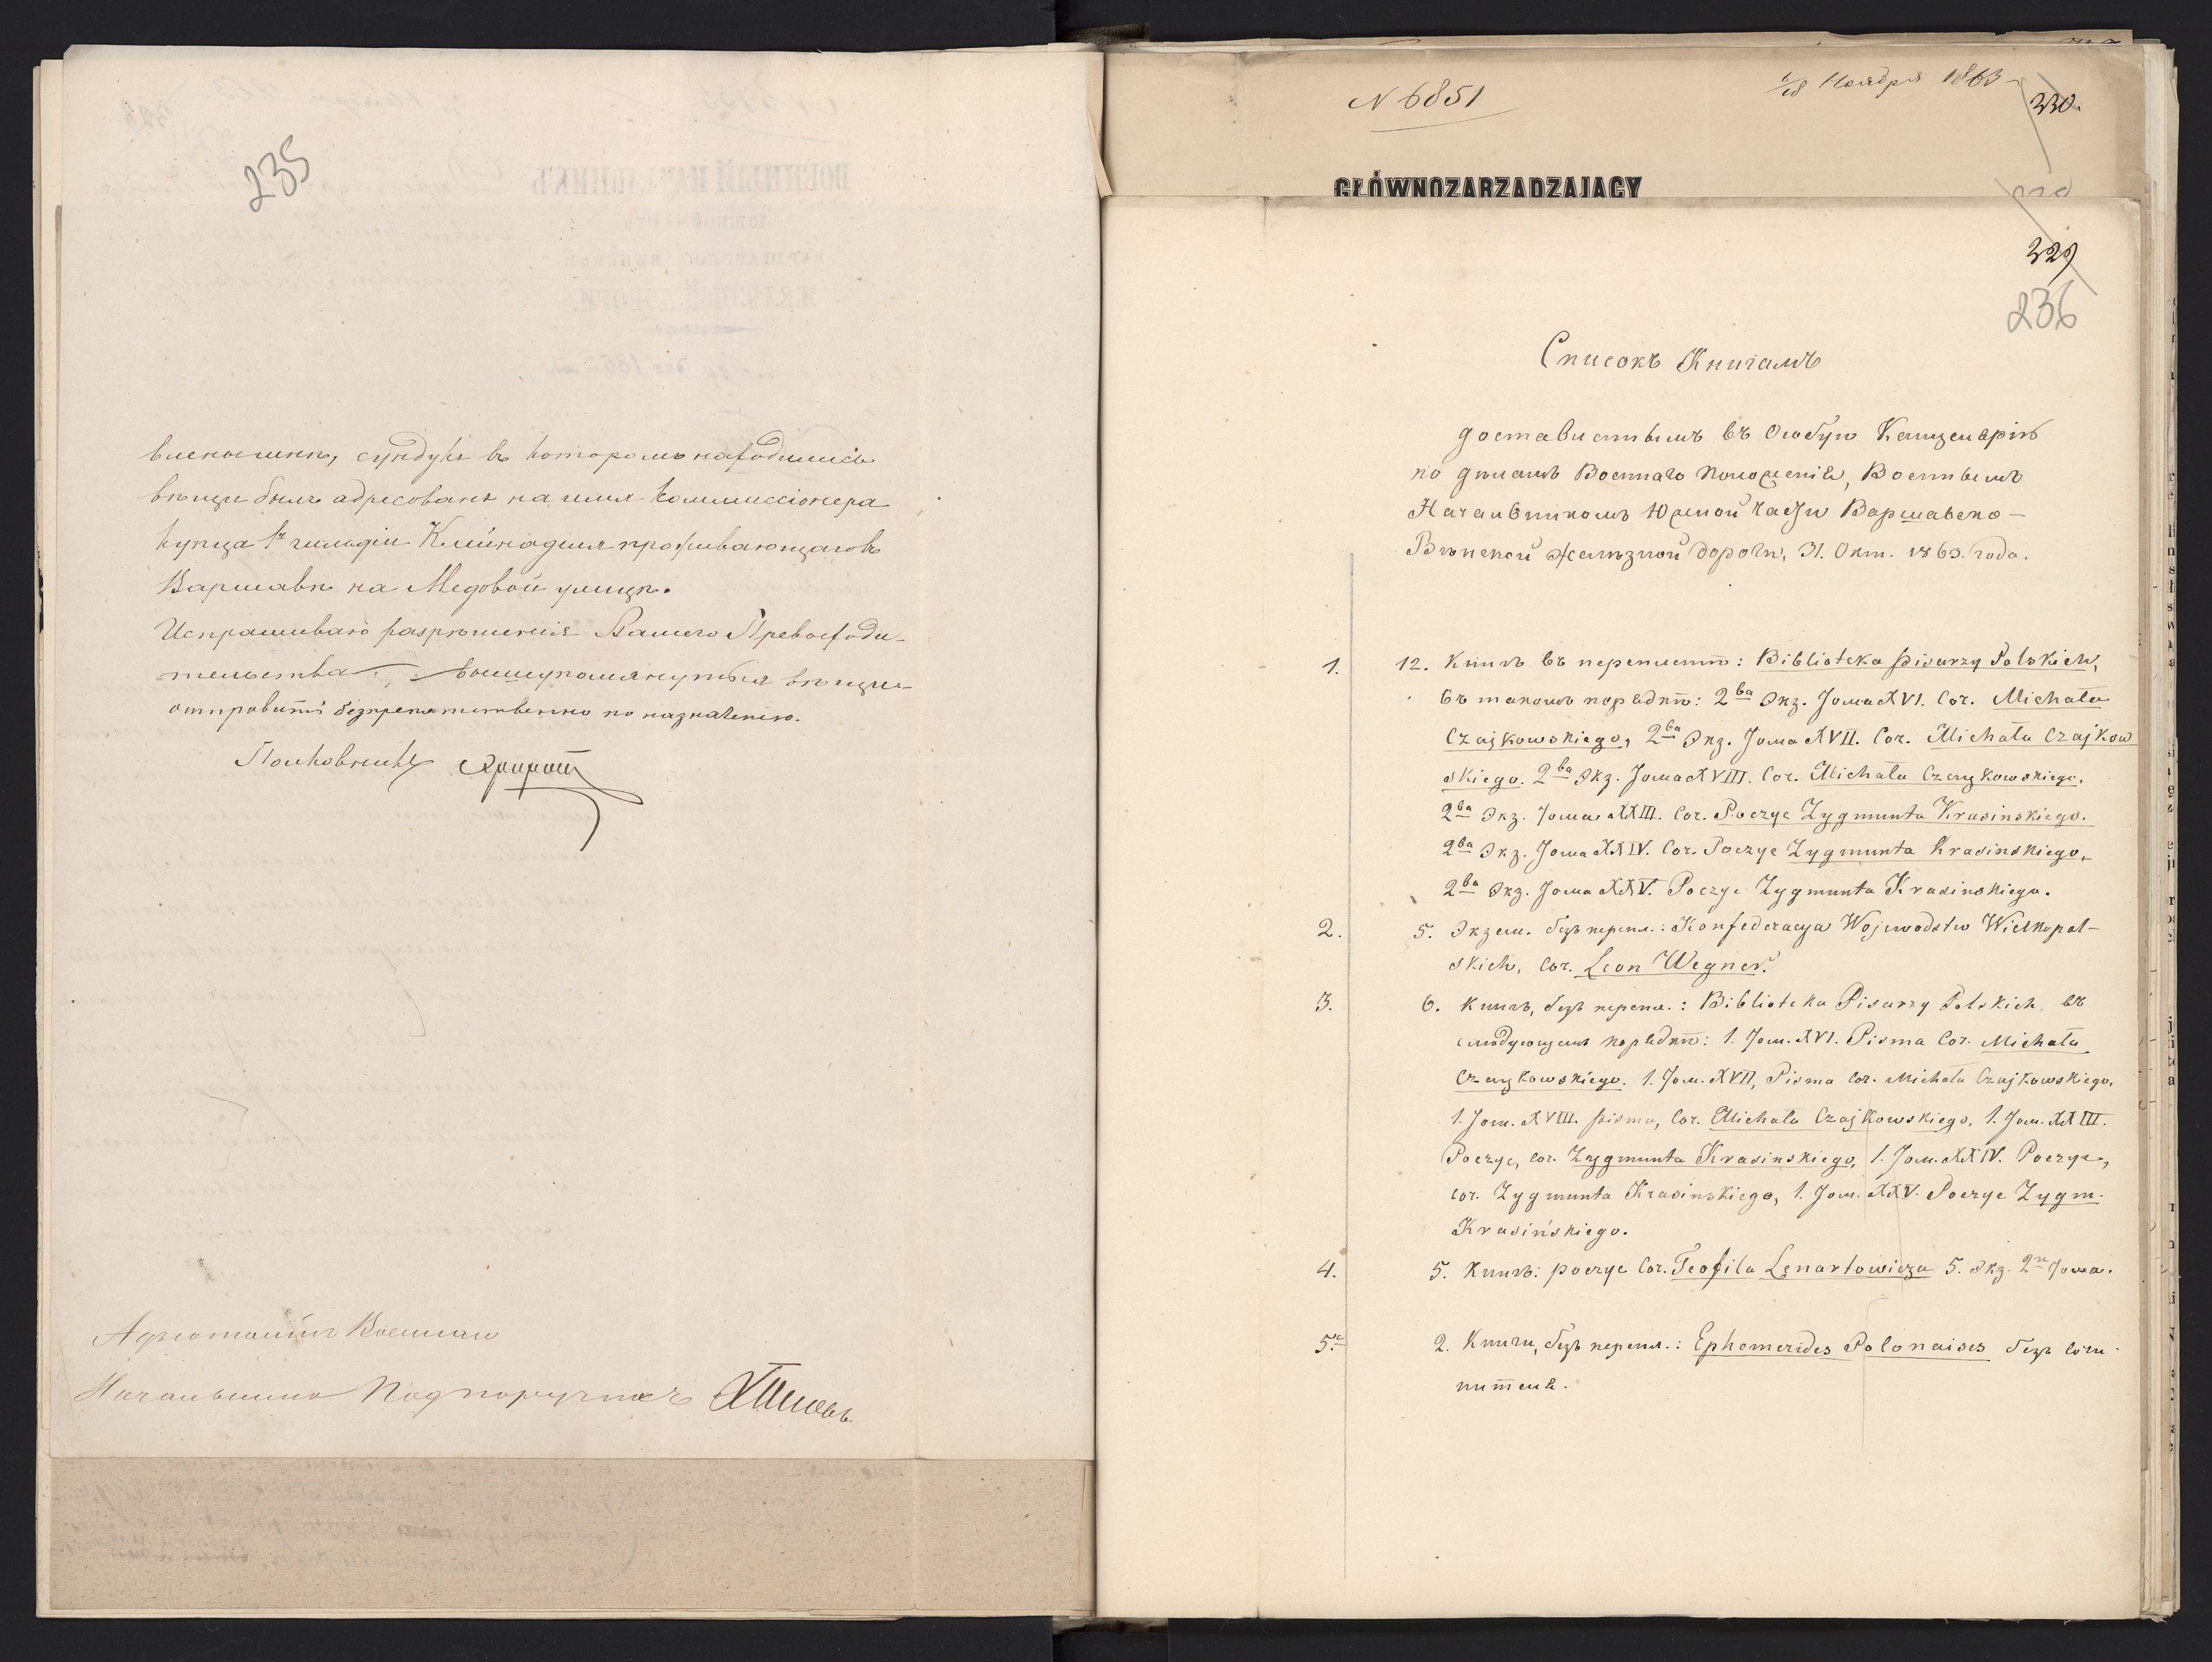 235
сундукъ въ которомъ находились
вещи былъ адресованъ на имя Коммиссіонера
купца 1й гильдіи проживающаго въ
Варшавѣ на Медовой улицѣ.
Испрашиваю разрѣшенія Вашего Превосходи-
тельства вышеупомянутыя вещи
отправить безпрепятственно по назначенію.
Полковникъ
Адъютантъ Военнаго
Начальника Подпоручикъ
N 6851
6/18 Ноября 1863
330.
GŁÓWNOZARZĄDZAJĄCY
329
236
Списокъ Книгамъ
доставленнымъ въ Особую Канцелярію
по дѣламъ Военнаго Положенія, Военнымъ
Начальникомъ Южной части Варшавско-
Вѣнской желѣзной дороги, 31. Окт. 1863. года.
1. 12. Книгъ въ переплетѣ: Biblioteka pisarzy Polskich,
въ такомъ порядкѣ: 2ва Экз. Тома XVI. Соч. Michała
Czajkowskiego, 2ва Экз. Тома XVII. Соч. Michała Czajkow
skiego. 2ва Экз. Тома XVIII. Соч. Michała Czajkowskiego.
2ва Экз. Тома XXIII. Соч. Poezye Zygmunta Krasinskiego.
2ва Экз. Тома XXIV. Соч. Poezye Zygmunta Krasinskiego,
2ва Экз. Тома XXV. Poezye Zygmunta Krasinskiego.
2. 5. Экзем. безъ перепл.: Konfederacya Wojewodstw Wielkopol-
skich, Соч. Leon Wegner.
3. 6. Книгъ, безъ перепл.: Biblioteka Pisarzy Polskich, въ
слѣдующемъ порядкѣ: 1. Том. XVI. Pisma Соч. Michała
Czajkowskiego. 1. Том. XVII, Pisma Соч. Michała Czajkowskiego,
1. Том. XVIII. pisma, Соч. Michała Czajkowskiego, 1. Том. XXIII.
Poezye, соч. Zygmunta Krasinskiego, 1. Том. XXIV. Poezye,
соч. Zygmunta Krasinskiego, 1. Том. XXV. Poezye Zygm.
Krasińskiego.
4. 5. Книгъ: poezye Соч. Teofila Lenartowicza 5. Экз. 2го Тома.
5. 2. Книги, безъ перепл.: Ephemerides Polonaises безъ сочи-
нителя.